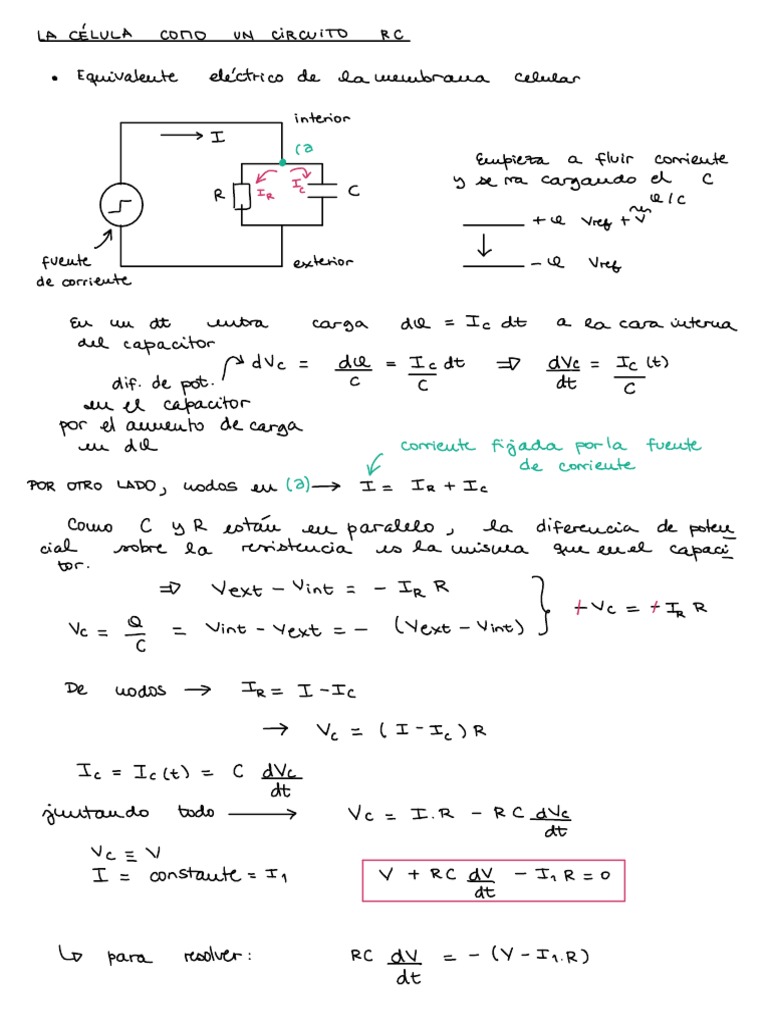 LA CÉLULA COMO UN CIRCUITO RC
• Equivalente eléctrico de la membrana celular
interior
I
(a
R
I_R
I_C
C
fuente
de corriente
exterior
Empieza a fluir corriente
y se va cargando el C
Q/C
+Q Vref + V
-Q Vref
En un dt entra carga dQ = I_C dt a la cara interna
del capacitor
dV_C = dQ/C = I_C/C dt ⇒ dV_C/dt = I_C(t)/C
dif. de pot.
en el capacitor
por el aumento de carga
en dQ
corriente fijada por la fuente
de corriente
POR OTRO LADO, nodos en (a) → I = I_R + I_C
Como C y R están en paralelo, la diferencia de poten
cial sobre la resistencia es la misma que en el capaci
tor.
⇒ Vext - Vint = - I_R R
V_C = Q/C = Vint - Vext = - (Vext - Vint)
+V_C = +I_R R
De nodos → I_R = I - I_C
→ V_C = (I - I_C) R
I_C = I_C(t) = C dV_C/dt
juntando todo → V_C = I.R - RC dV_C/dt
V_C ≡ V
I = constante = I_1
V + RC dV/dt - I_1 R = 0
↳ para resolver: RC dV/dt = - (V - I_1.R)